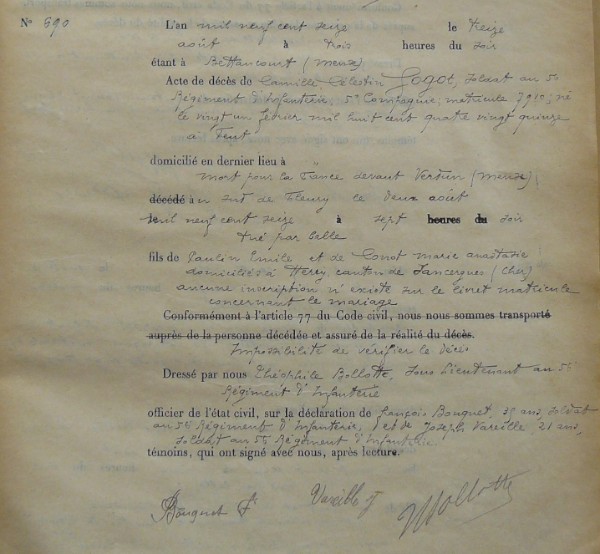 N° 690 L'an mil neuf cent seize le treize
août à trois heures du soir
étant à Bettancourt (Meuse)
Acte de décès de Camille Célestin Gogot, soldat au 5e
Régiment d'Infanterie, 5e Compagnie, matricule 7910, né
le vingt un février mil huit cent quatre vingt quinze
à
domicilié en dernier lieu à
mort pour la France devant Verdun (Meuse)
décédé à au sud de Fleury le deux août
mil neuf cent seize à sept heures du soir
tué par balle
fils de Paulin Emile et de Marie Anastasie
domiciliés à Herry, canton de Sancergues (Cher)
aucune inscription n'existe sur le livret matricule
concernant le mariage
Conformément à l'article 77 du Code civil, nous nous sommes transporté
auprès de la personne décédée et assuré de la réalité du décès.
Impossibilité de vérifier le décès
Dressé par nous Théophile Bollotte, Sous Lieutenant au 5e
Régiment d'Infanterie
officier de l'état civil, sur la déclaration de François Bouquet, ans, soldat
au 5e Régiment d'Infanterie, et de Joseph Vareille, 21 ans,
soldat au 5e Régiment d'Infanterie
témoins, qui ont signé avec nous, après lecture.
Bouquet F. Vareille J Bollotte